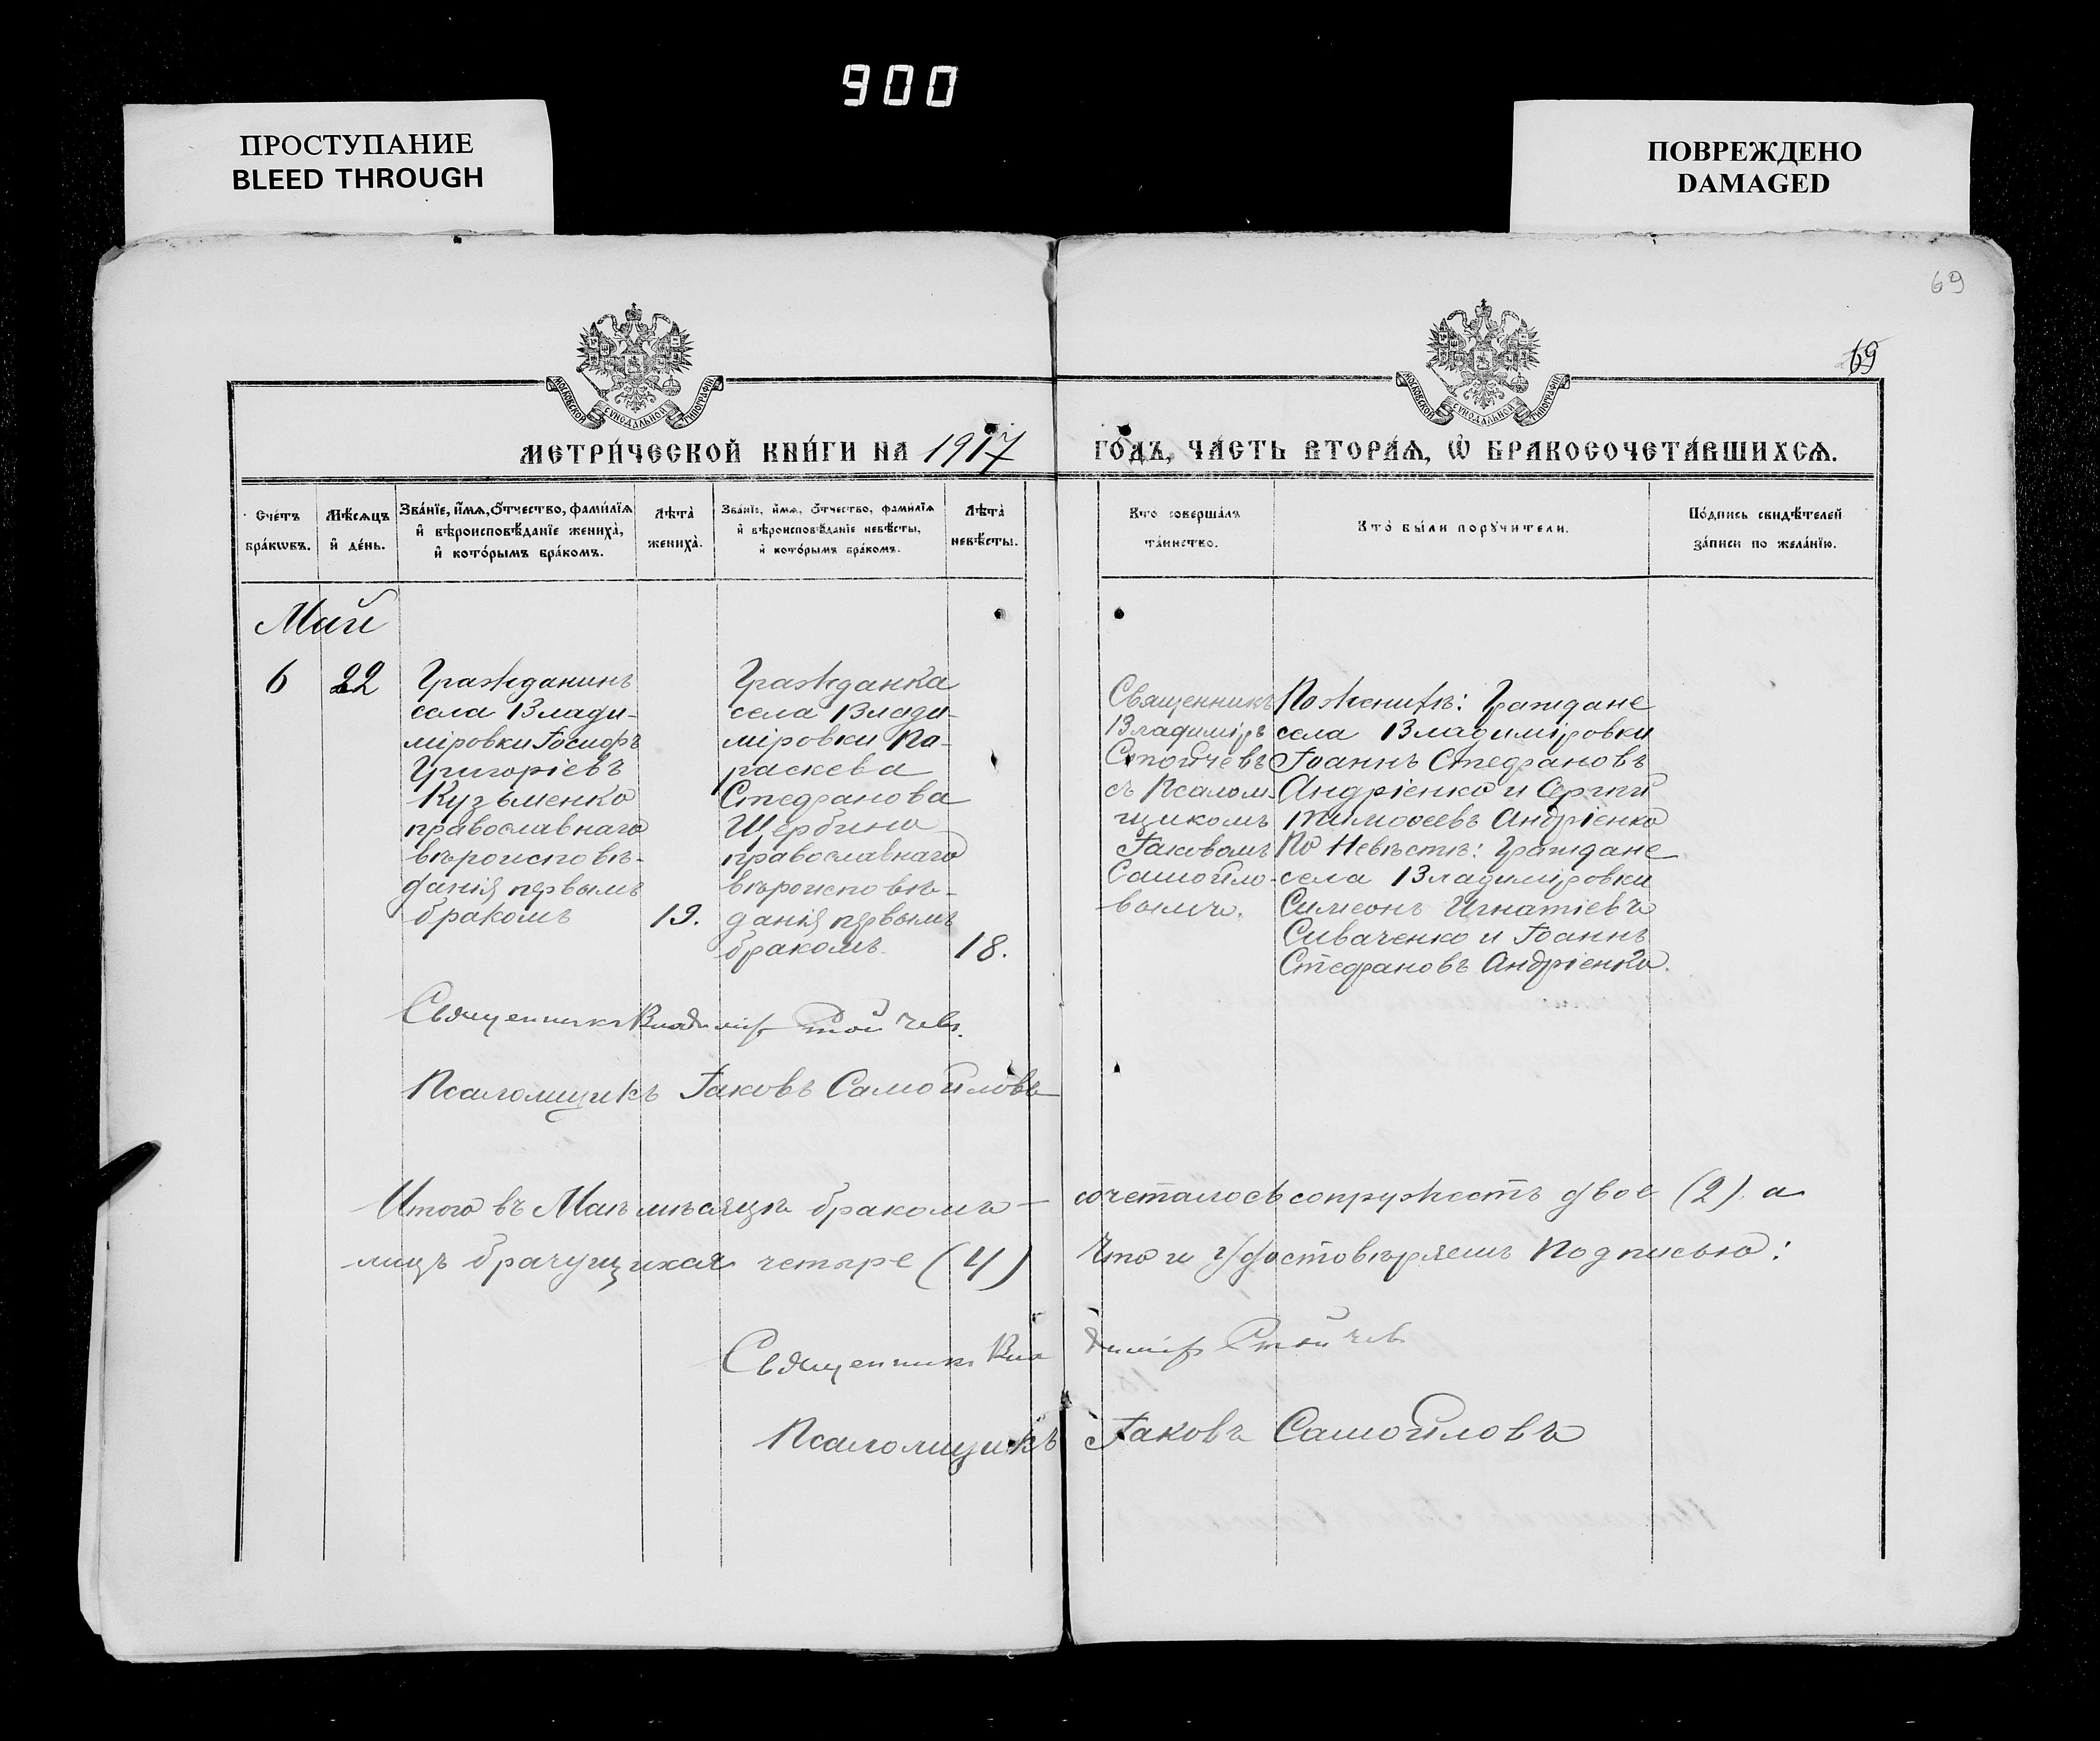 900
ПРОСТУПАНИЕ
BLEED THROUGH
ПОВРЕЖДЕНО
DAMAGED
69
69
МОСКОВСКОЙ СѴНОДАЛЬНОЙ ТИПОГРАФІИ
МОСКОВСКОЙ СѴНОДАЛЬНОЙ ТИПОГРАФІИ
МЕТРИ́ЧЕСКОЙ КНИ́ГИ НА 1917 ГО́ДЪ, ЧА́СТЬ ВТОРА́Ѧ, Ѽ БРАКОСОЧЕТА́ВШИХСѦ.
Сче́тъ
бра́кωвъ.
Мѣ́сѧцъ
и҆ де́нь.
Зва́нїе, и҆́мѧ, ѻ҆́тчество, фами́лїѧ
и҆ вѣроисповѣ́данїе жениха̀,
и҆ кото́рымъ бра́комъ.
Лѣта̀
жениха̀.
Зва́нїе, и҆́мѧ, ѻ҆́тчество, фами́лїѧ
и҆ вѣроисповѣ́данїе невѣ́сты,
и҆ кото́рымъ бра́комъ.
Лѣта̀
невѣ́сты.
Кто̀ соверша́лъ
та́инство.
Кто̀ бы́ли порꙋчи́тели.
По́дпись свидѣ́телей
за́писи по жела́нїю.
Май
6
22
Гражданинъ
села Влади-
міровки Іосифъ
Григоріевъ
Кузьменко
православнаго
вѣроисповѣ-
данія первымъ
бракомъ
19.
Гражданка
села Влади-
міровки Па-
раскева
Стефанова
Щербина
православнаго
вѣроисповѣ-
данія первымъ
бракомъ
18.
Священникъ
Владиміръ
Стойчевъ
съ Псалом-
щикомъ
Іаковомъ
Самойло-
вымъ.
По Женихѣ: Граждане
села Владиміровки
Іоаннъ Стефановъ
Андріенко и Сергій
Тимоѳеевъ Андріенко
По Невѣстѣ: Граждане
села Владиміровки
Симеонъ Игнатіевъ
Сиваченко и Іоаннъ
Стефановъ Андріенко.
Священникъ Владиміръ Стойчевъ.
Псаломщикъ Іаковъ Самойловъ
Итого въ Маѣ мѣсяцѣ бракомъ - сочеталось супружествъ двое (2) а
лицъ брачущихся четыре (4) Что и удостовѣряемъ подписью:
Священникъ Владиміръ Стойчев
Псаломщикъ Іаковъ Самойловъ